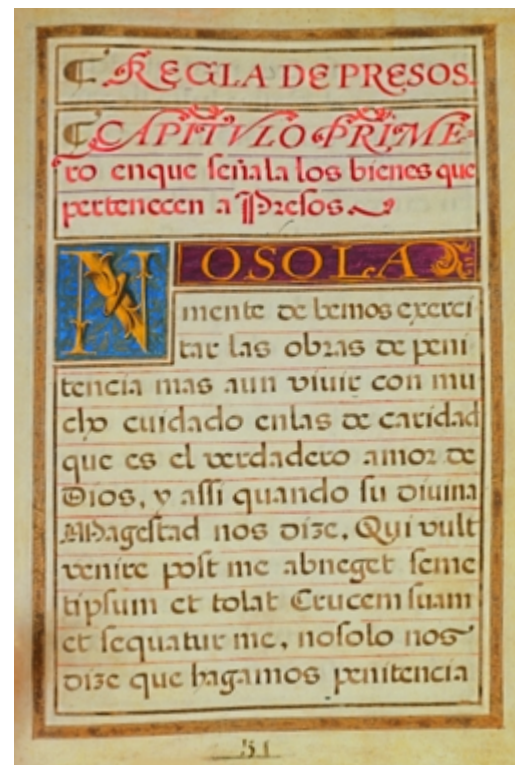 ¶ REGLA DE PRESOS.
¶ CAPITVLO PRIME
ro enque señala los bienes que
pertenecen a Presos.
NOSOLA
mente de bemos exerci
tar las obras de peni
tencia mas aun viuir con mu
cho cuidado enlas de caridad
que es el verdadero amor de
Dios, y assi quando su diuina
Magestad nos dize, Qui vult
venire post me abneget seme
tipsum et tolat Crucem suam
et sequatur me, nosolo nos
dize que hagamos penitencia
51